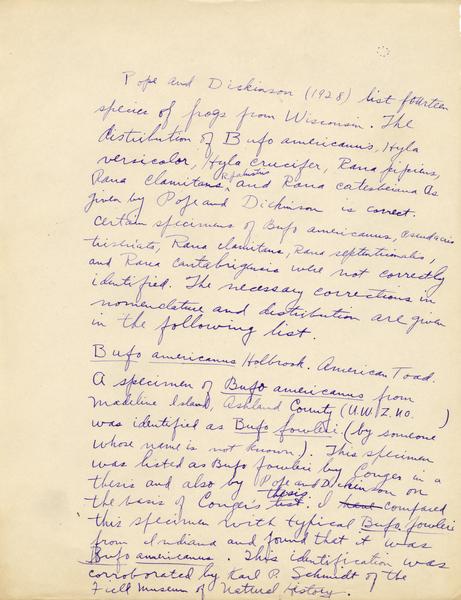 Pope and Dickinson (1928) list fourteen
species of frogs from Wisconsin. The
distribution of Bufo americanus, Hyla
versicolor, Hyla crucifer, Rana pipiens,
Rana clamitans, R. palustris and Rana catesbeiana as
given by Pope and Dickinson is correct.
Certain specimens of Bufo americanus, Pseudacris
triseriata, Rana clamitans, Rana septentrionalis,
and Rana cantabrigensis were not correctly
identified. The necessary corrections in
nomenclature and distribution are given
in the following list.
Bufo americanus Holbrook. American Toad.
A specimen of Bufo americanus from
Madeline Island, Ashland County (U.W.Z. no. )
was identified as Bufo fowleri (by someone
whose name is not known). This specimen
was listed as Bufo fowleri by Conger in a
thesis and also by Pope and Dickinson on
the basis of Congers list thesis. I have compared
this specimen with typical Bufo fowleri
from Indiana and found that it was
Bufo americanus. This identification was
corroborated by Karl P. Schmidt of the
Field Museum of Natural History.